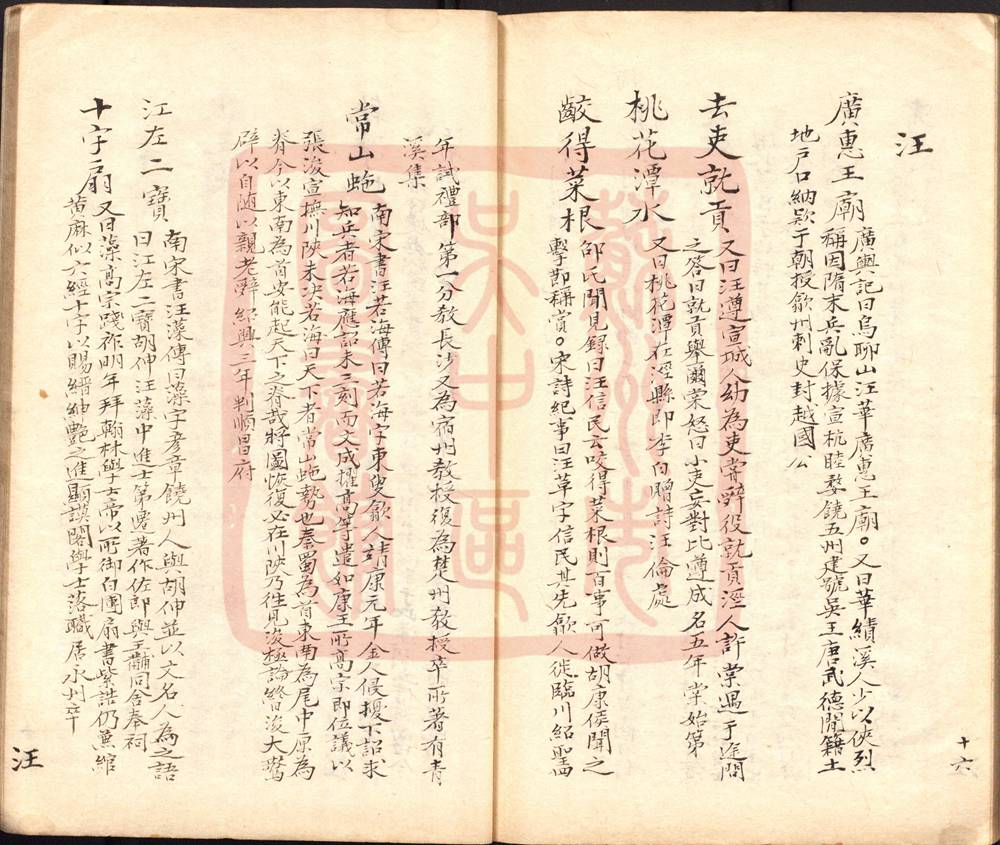 汪
廣惠王廟 廣輿記曰烏聊山汪華廣惠王廟。又曰華績溪人少以俠烈
稱因隋末兵亂保據宣杭睦婺饒五州建號吳王唐武德間籍土
地戶口納欵于朝授歙州刺史封越國公
去吏就貢 又曰汪遵宣城人幼為吏嘗辭役就貢涇人許棠遇于途問
之答曰就貢舉爾棠怒曰小吏妄對比遵成名五年棠始第
桃花潭水 又曰桃花潭在涇縣即李白贈詩汪倫處
齩得菜根 邵氏聞見録曰汪信民云咬得菜根則百事可做胡康侯聞之
擊節稱賞。宋詩紀事曰汪革字信民其先歙人徙臨川紹聖四
十六
年試禮部第一分教長沙又為宿州教授復為楚州教授卒所著有青
溪集
常山虵 南宋書汪若海傳曰若海字東叟歙人靖康元年金人侵擾下詔求
知兵者若海應詔未三刻而文成擢高等遣如康王所高宗即位議以
張浚宣撫川陝未決若海曰天下者常山虵勢也秦蜀為首東南為尾中原為
脊今以東南為首安能起天下之脊哉將圖恢復必在川陝乃往見浚極論終浚大驚
辟以自随以親老辭 紹興三年判順昌府
江左二寶 南宋書汪藻傳曰藻字彥章饒州人與胡伸並以文名人為之語
曰江左二寶胡伸汪藻中進士第遷著作佐郎與王黼同舍奉祠
十字扇 又曰藻高宗踐祚明年拜翰林學士帝以所御白團扇書紫誥仍蒹綰
黃麻似六經十字以賜縉紳艷之進顯謨閣學士落職居永州卒
汪